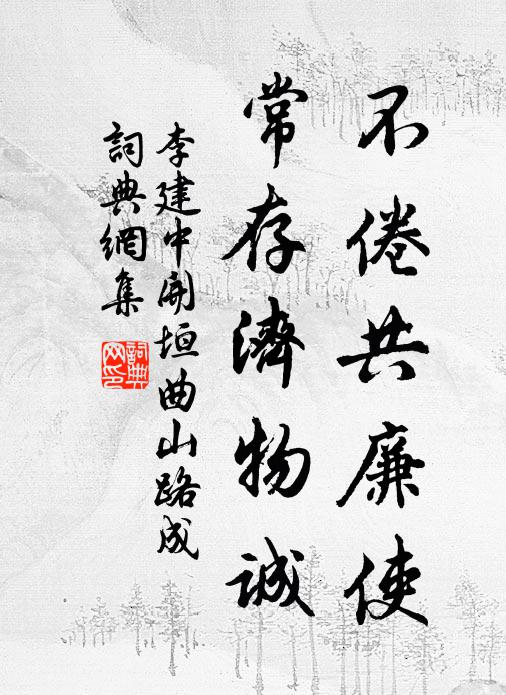 不倦共廉使
常存濟物誠
李建中開垣曲山路成
詞典網集
詞典
网印